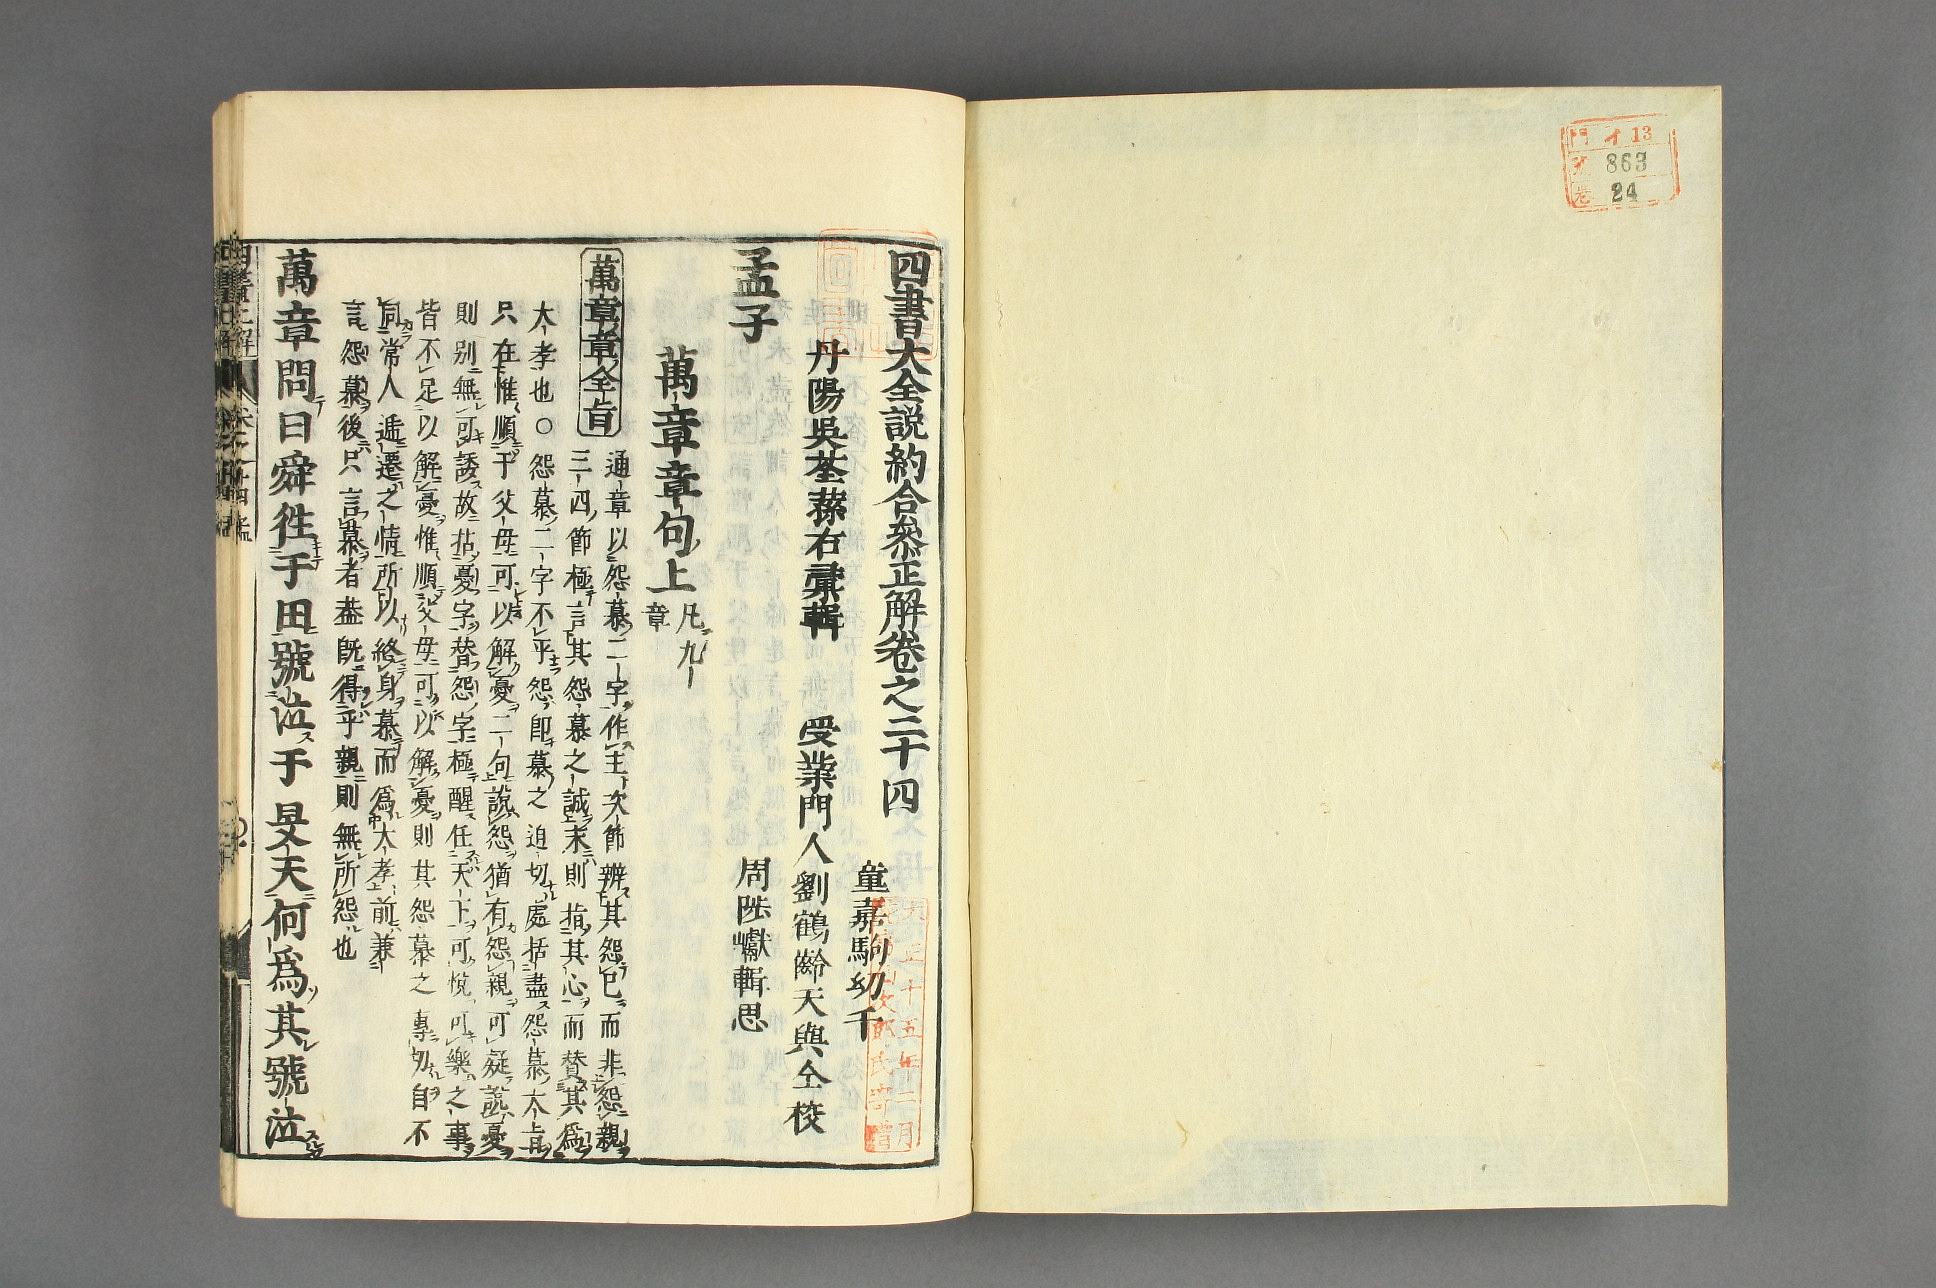 門 イ 13
號 863
卷 24
四書大全説約合參正解卷之二十四
丹陽吳荃蓀右彙輯
童嘉駒幼千
受業門人劉鶴齡天與仝校
周陛巘輯思
大正十五年二月
次郎氏寄贈
孟子
萬章章句上 凡九章
萬章章全旨
通章以怨慕二字作主次節辨其怨已而非怨親
三四節極言其怨慕之誠末則指其心而賛其爲
大孝也○怨慕二字不平怨即慕之迫切處括盡怨慕大旨
只在惟順于父母可以解憂二句說怨猶有怨親可疑說憂
則别無可誘故拈憂字替怨字極醒任天下可悅可樂之事
皆不足以解憂惟順父母可以解憂則其怨慕之專切自不
同常人逓遷之情所以終身慕而爲大孝前兼
言怨慕後只言慕者葢既得乎親則無所怨也
萬章問曰舜徃于田號泣于旻天何爲其號泣